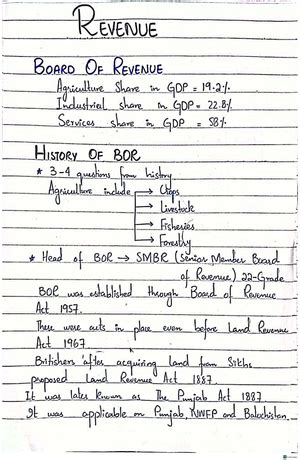 REVENUE
BOARD OF REVENUE
Agriculture Share in GDP = 19.2%
Industrial share in GDP = 22.8%
Services share in GDP = 58%
HISTORY OF BOR
* 3-4 questions from history
Agriculture include → Crops
→ Livestock
→ Fisheries
→ Forestry
* Head of BOR → SMBR (Senior Member Board
of Revenue) 22-Grade
BOR was established through Board of Revenue
Act 1957.
There were acts in place even before Land Revenue
Act 1967.
Britishers after acquiring land from Sikhs
proposed Land Revenue Act 1887.
It was later known as The Punjab Act 1887
It was applicable on Punjab, NWFP and Balochistan.